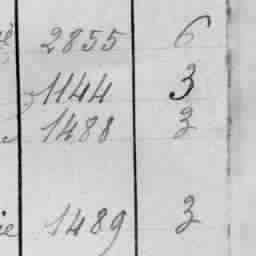 2855 6
1144 3
1488 3
1489 3